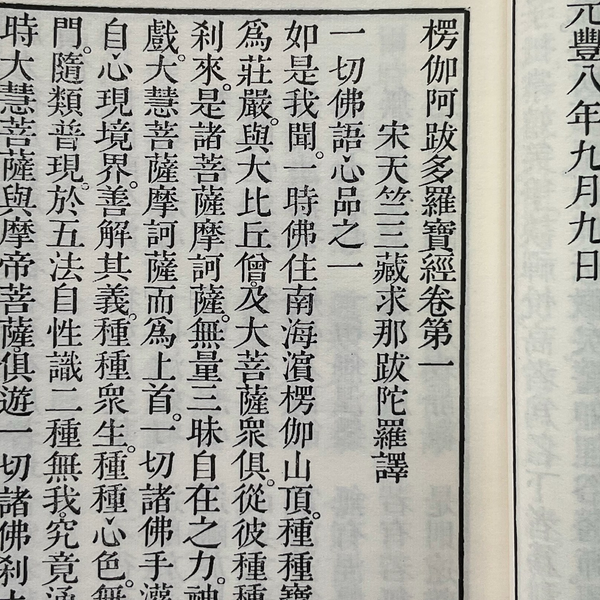 元豐八年九月九日
楞伽阿跋多羅寶經卷第一
宋天竺三藏求那跋陀羅譯
一切佛語心品之一
如是我聞。一時佛住南海濱楞伽山頂。種種寶
爲莊嚴。與大比丘僧。及大菩薩衆俱。從彼種種
刹來。是諸菩薩摩訶薩。無量三昧自在之力。神
戲。大慧菩薩摩訶薩而爲上首。一切諸佛手灌
自心現境界。善解其義。種種衆生。種種心色。無
門。隨類普現。於五法自性識二種無我。究竟通
時大慧菩薩與摩帝菩薩。俱遊一切諸佛刹土